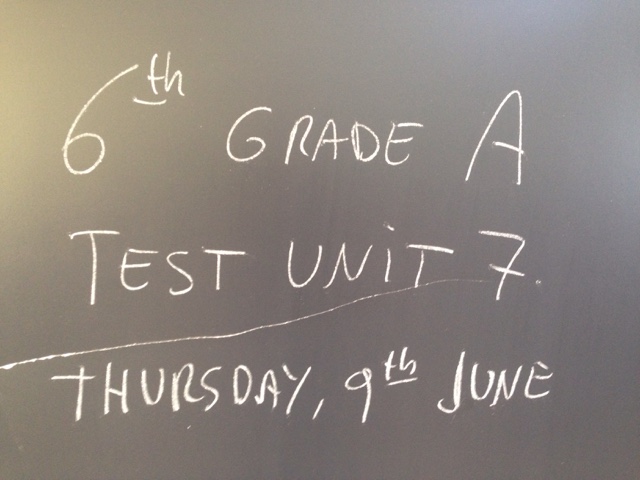 6th GRADE A
TEST UNiT 7.
THURSDAY, 9th JUNE